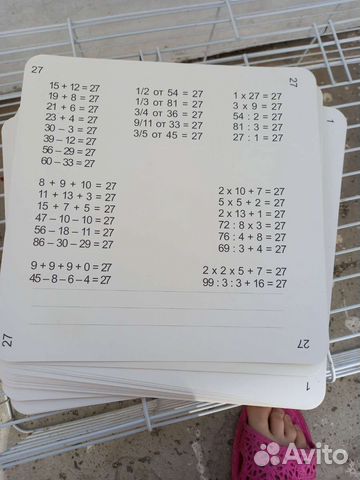 27
27
15 + 12 = 27
19 + 8 = 27
21 + 6 = 27
23 + 4 = 27
30 – 3 = 27
39 – 12 = 27
56 – 29 = 27
60 – 33 = 27
1/2 от 54 = 27
1/3 от 81 = 27
3/4 от 36 = 27
9/11 от 33 = 27
3/5 от 45 = 27
1 x 27 = 27
3 x 9 = 27
54 : 2 = 27
81 : 3 = 27
27 : 1 = 27
8 + 9 + 10 = 27
11 + 13 + 3 = 27
15 + 7 + 5 = 27
47 – 10 – 10 = 27
56 – 18 – 11 = 27
86 – 30 – 29 = 27
2 x 10 + 7 = 27
5 x 5 + 2 = 27
2 x 13 + 1 = 27
72 : 8 x 3 = 27
76 : 4 + 8 = 27
69 : 3 + 4 = 27
9 + 9 + 9 + 0 = 27
45 – 8 – 6 – 4 = 27
2 x 2 x 5 + 7 = 27
99 : 3 : 3 + 16 = 27
27
27
1
1
Avito